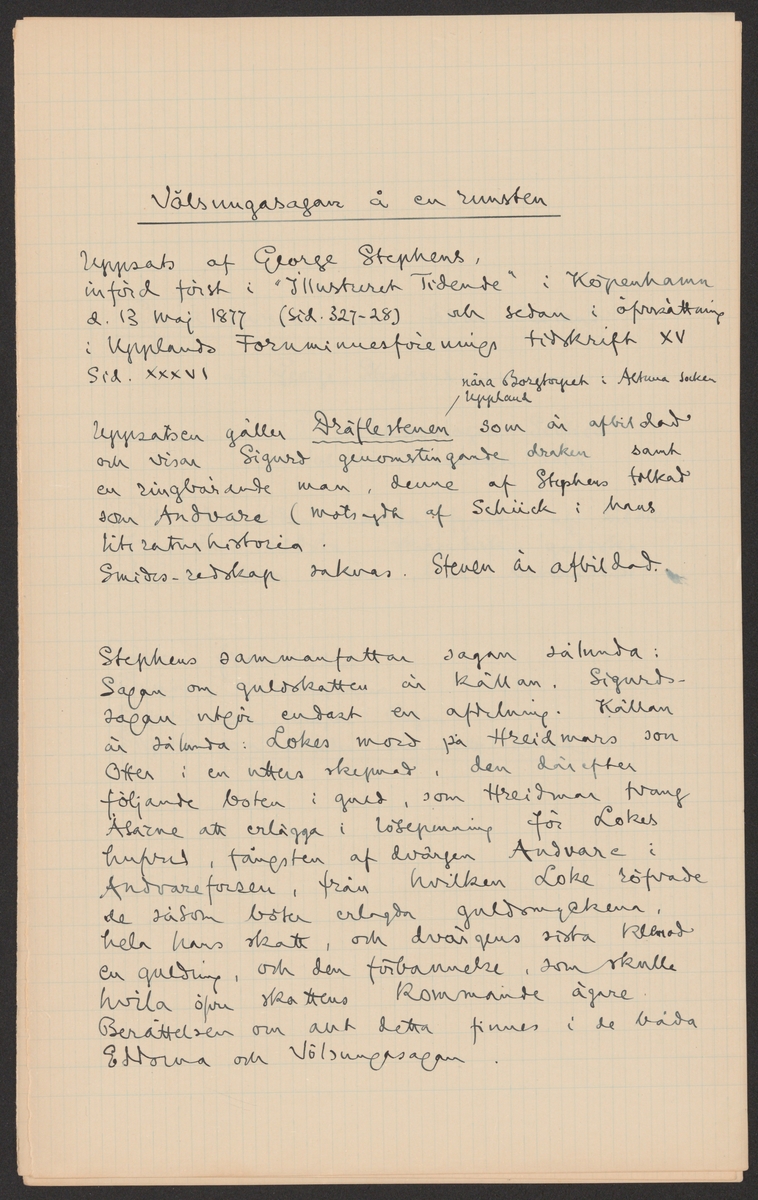 Völsungasagan å en runsten
Uppsats af George Stephens,
införd först i "Illustreret Tidende" i Köpenhamn
d. 13 Maj 1877 (Sid. 327-28) och sedan i öfversättning
i Upplands Fornminnesförenings tidskrift XV
Sid. XXXVI
nära Borgtorpet i Altuna socken
Uppland
Uppsatsen gäller Dräflestenen som är afbildad
och visar Sigurd genomstingande draken samt
en ringbärande man, denne af Stephens tolkad
som Andvare (motsagdt af Schück i hans
literaturhistoria.
Smides-redskap saknas. Stenen är afbildad.
Stephens sammanfattar sagan sålunda:
Sagan om guldskatten är källan. Sigurds-
sagan utgör endast en afdelning. Källan
är sålunda: Lokes mord på Hreidmars son
Otter i en utters skepnad, den därefter
följande boten i guld, som Hreidmar tvang
Asarne att erlägga i lösepenning för Lokes
hufvud, fångsten af dvärgen Andvare i
Andvareforsen, från hvilken Loke röfvade
de såsom böter erlagda guldsmyckena,
hela hans skatt, och dvärgens sista klenod
en guldring, och den förbannelse, som skulle
hvila öfver skattens kommande ägare.
Berättelsen om allt detta finnes i de båda
Eddorna och Völsungasagan.